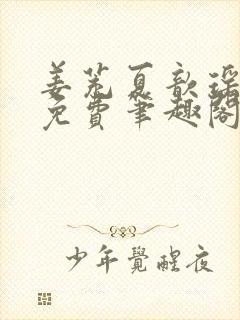 姜荒夏歆瑶
免費筆趣閣
少年覺醒夜